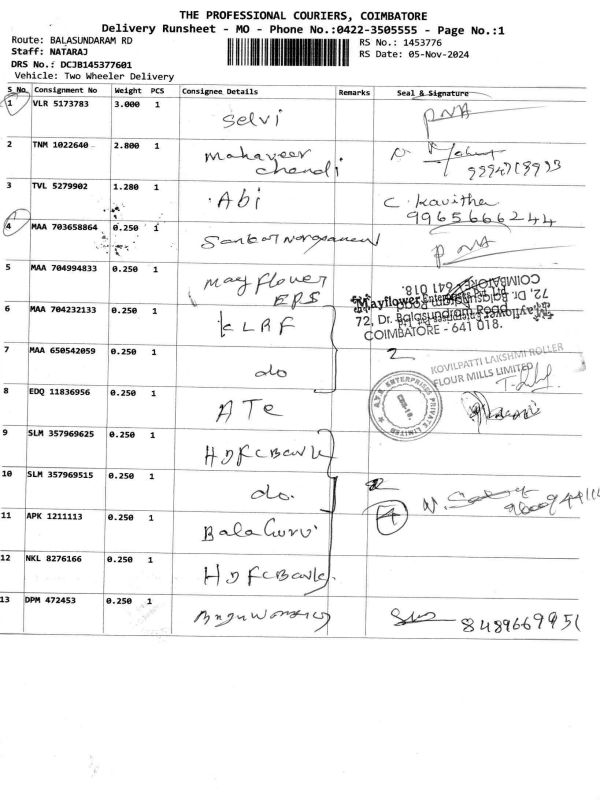 THE PROFESSIONAL COURIERS, COIMBATORE
Delivery Runsheet - MO - Phone No.:0422-3505555 - Page No.:1
Route: BALASUNDARAM RD
RS No.: 1453776
Staff: NATARAJ
RS Date: 05-Nov-2024
DRS No.: DCJB145377601
Vehicle: Two Wheeler Delivery
S No. Consignment No Weight PCS Consignee Details Remarks Seal & Signature
1 VLR 5173783 3.000 1 Selvi
2 TNM 1022640 2.800 1 Mahaveer
3 TVL 5279902 1.280 1 Abi C. Kavitha
9965666244
4 MAA 703658864 0.250 1
5 MAA 704994833 0.250 1 Mayflower
Mayflower Enterprises Pvt. Ltd.
72, Dr. Balasundram Road
COIMBATORE - 641 018.
6 MAA 704232133 0.250 1 KLRF
7 MAA 650542059 0.250 1 do 2
KOVILPATTI LAKSHMI ROLLER
FLOUR MILLS LIMITED
8 EDQ 11836956 0.250 1 ATE
ENTERPRISES PRIVATE LIMITED
9 SLM 357969625 0.250 1 HDFC Bank
10 SLM 357969515 0.250 1 do.
11 APK 1211113 0.250 1 Bala Guru 4
12 NKL 8276166 0.250 1 HDFC Bank
13 DPM 472453 0.250 1 8489669951